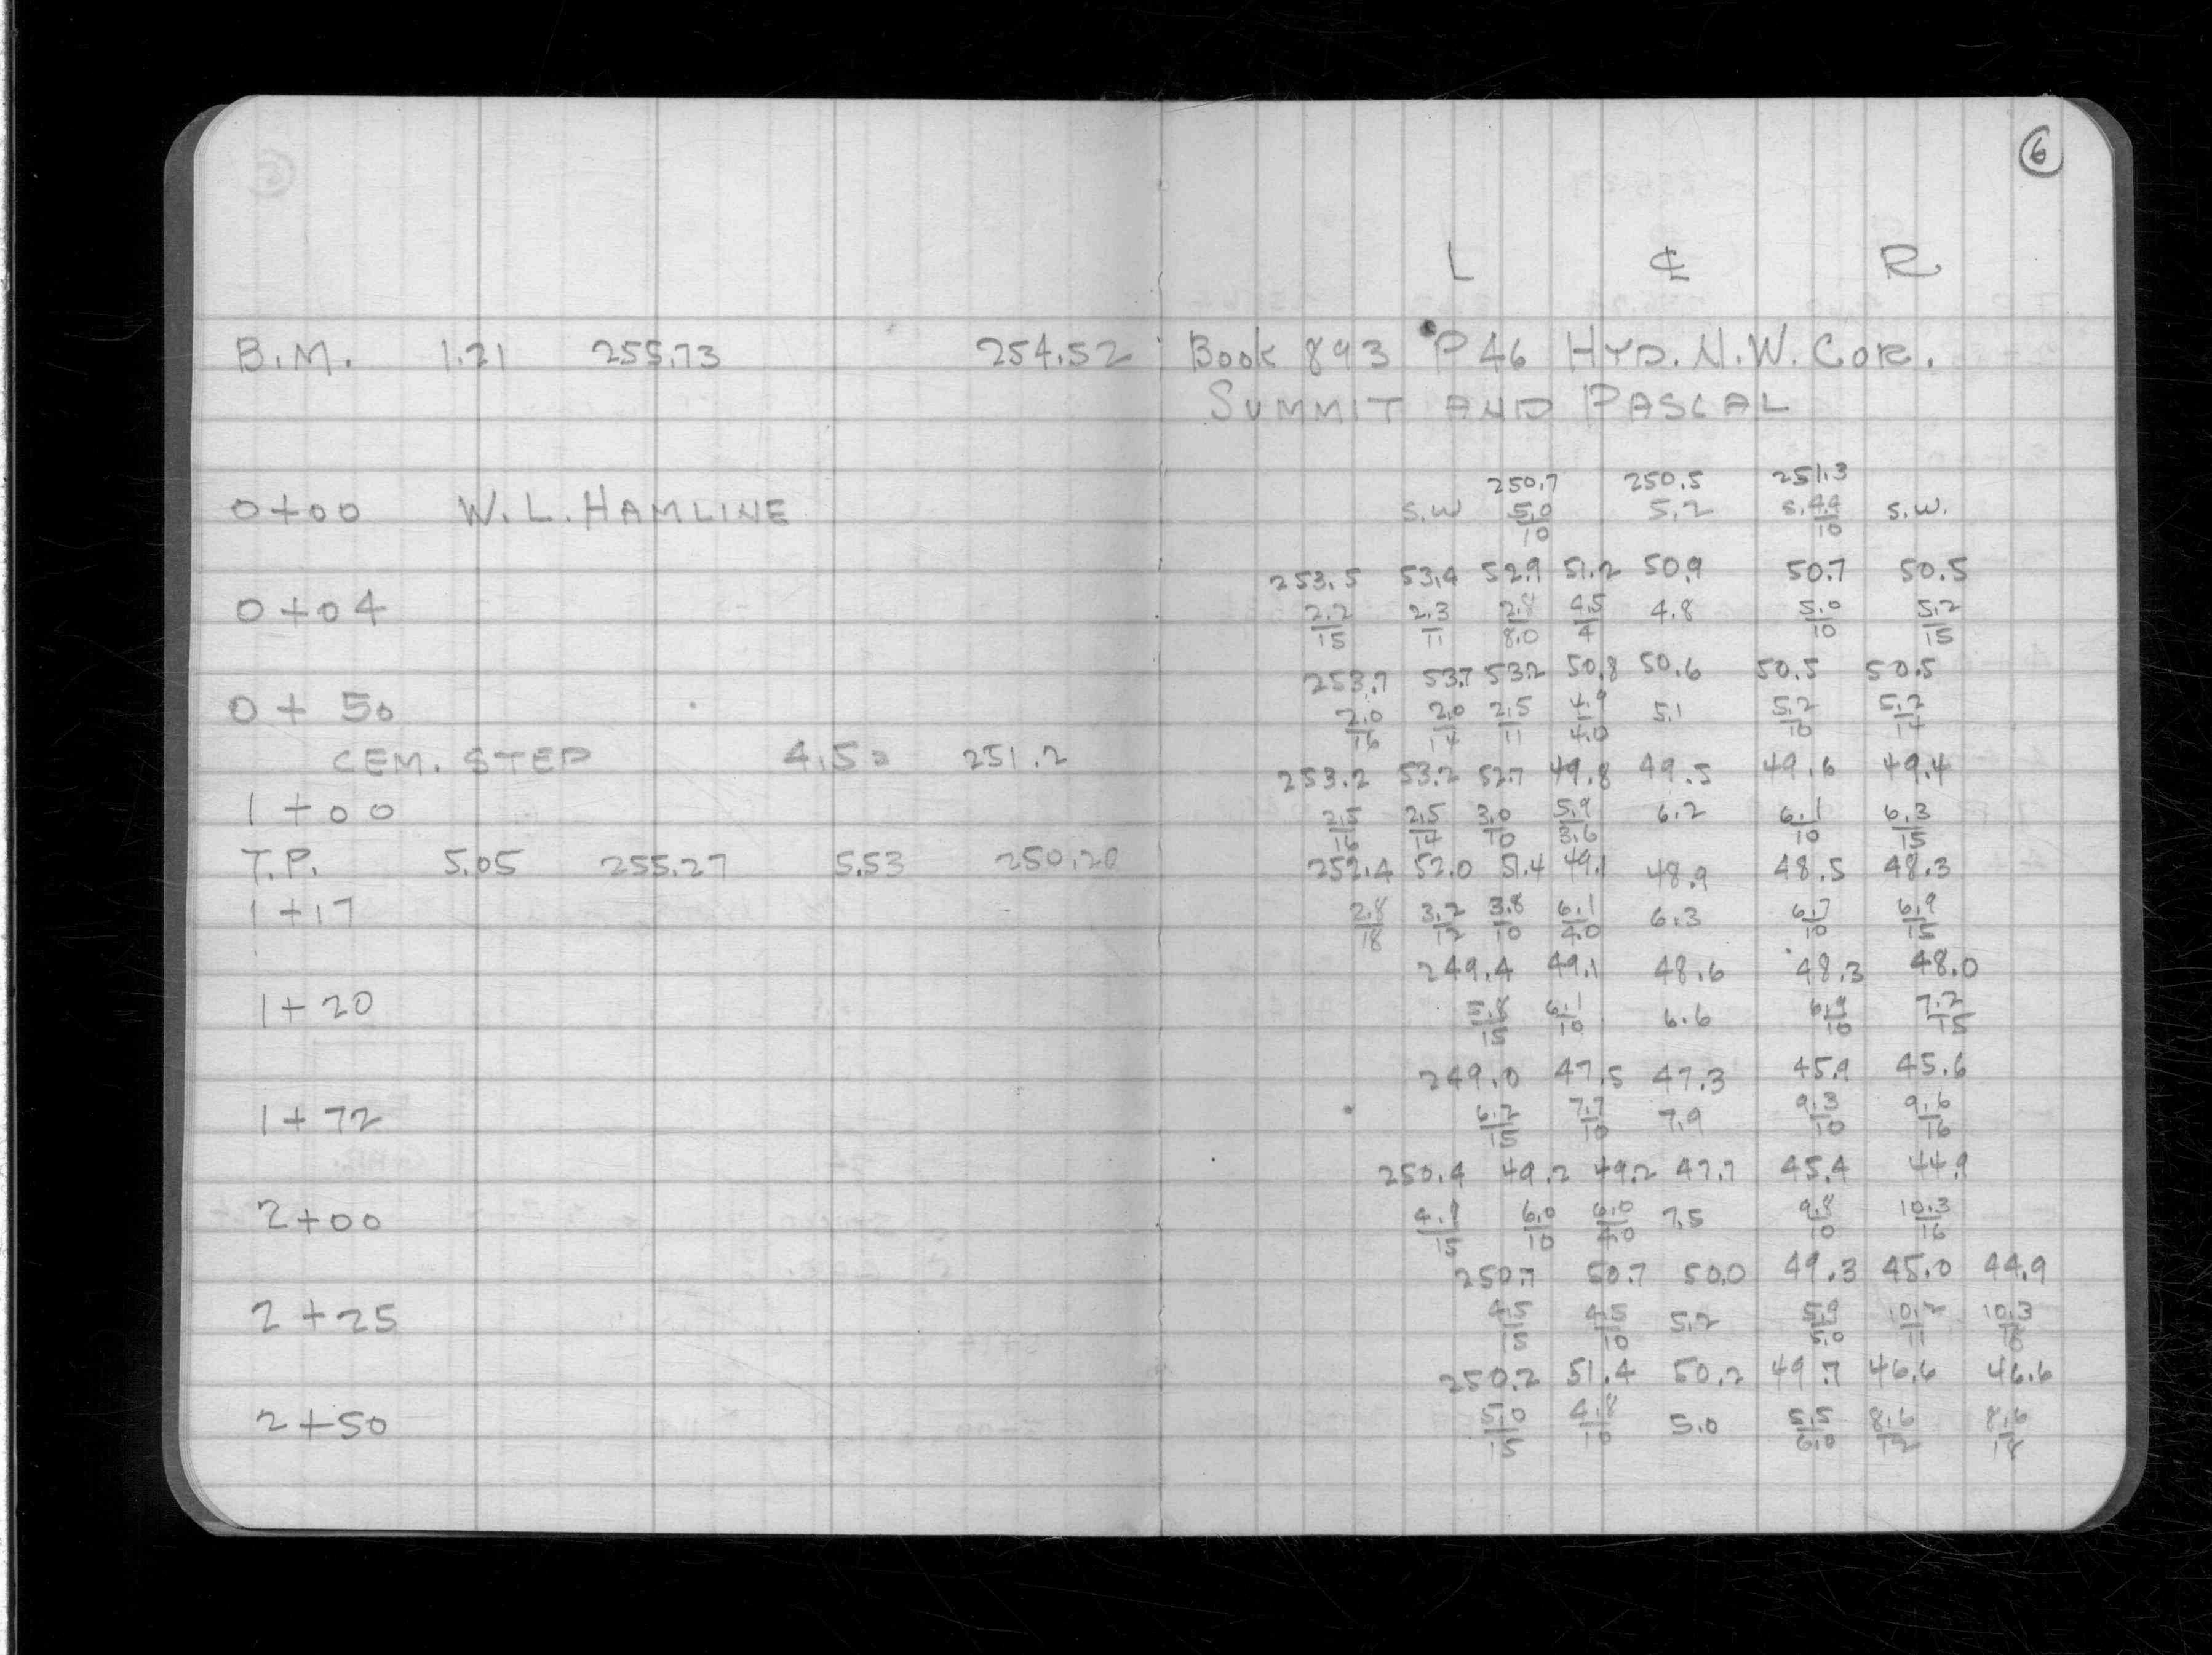 6
L ℄ R
B.M. 1.21 255.73 254.52 Book 893 P46 HYD. N.W. COR.
SUMMIT AND PASCAL
250.7 250.5 251.3
0+00 W. L. HAMLINE S.W 5.0/10 5.2 S.4.4/10 S.W.
253.5 53.4 52.9 51.2 50.9 50.7 50.5
0+04 2.2/15 2.3/11 2.8/8.0 4.5/4 4.8 5.0/10 5.2/15
253.7 53.7 53.2 50.8 50.6 50.5 50.5
0+50 2.0/16 2.0/14 2.5/11 4.9/4.0 5.1 5.2/10 5.2/14
CEM. STEP 4.52 251.2
253.2 53.2 52.7 49.8 49.5 49.6 49.4
1+00 2.5/16 2.5/14 3.0/10 5.9/3.6 6.2 6.1/10 6.3/15
T.P. 5.05 255.27 5.53 250.20
252.4 52.0 51.4 49.1 48.9 48.5 48.3
1+17 2.8/18 3.2/12 3.8/10 6.1/4.0 6.3 6.7/10 6.9/15
249.4 49.1 48.6 48.3 48.0
1+20 5.8/15 6.1/10 6.6 6.9/10 7.2/15
249.0 47.5 47.3 45.9 45.6
1+72 6.2/15 7.7/10 7.9 9.3/10 9.6/16
250.4 49.2 49.2 47.7 45.4 44.9
2+00 4.9/15 6.0/10 6.0/4.0 7.5 9.8/10 10.3/16
250.7 50.7 50.0 49.3 45.0 44.9
2+25 4.5/15 4.5/10 5.2 5.9/5.0 10.2/11 10.3/18
250.2 51.4 50.2 49.7 46.6 46.6
2+50 5.0/15 4.8/10 5.0 5.5/6.0 8.6/12 8.6